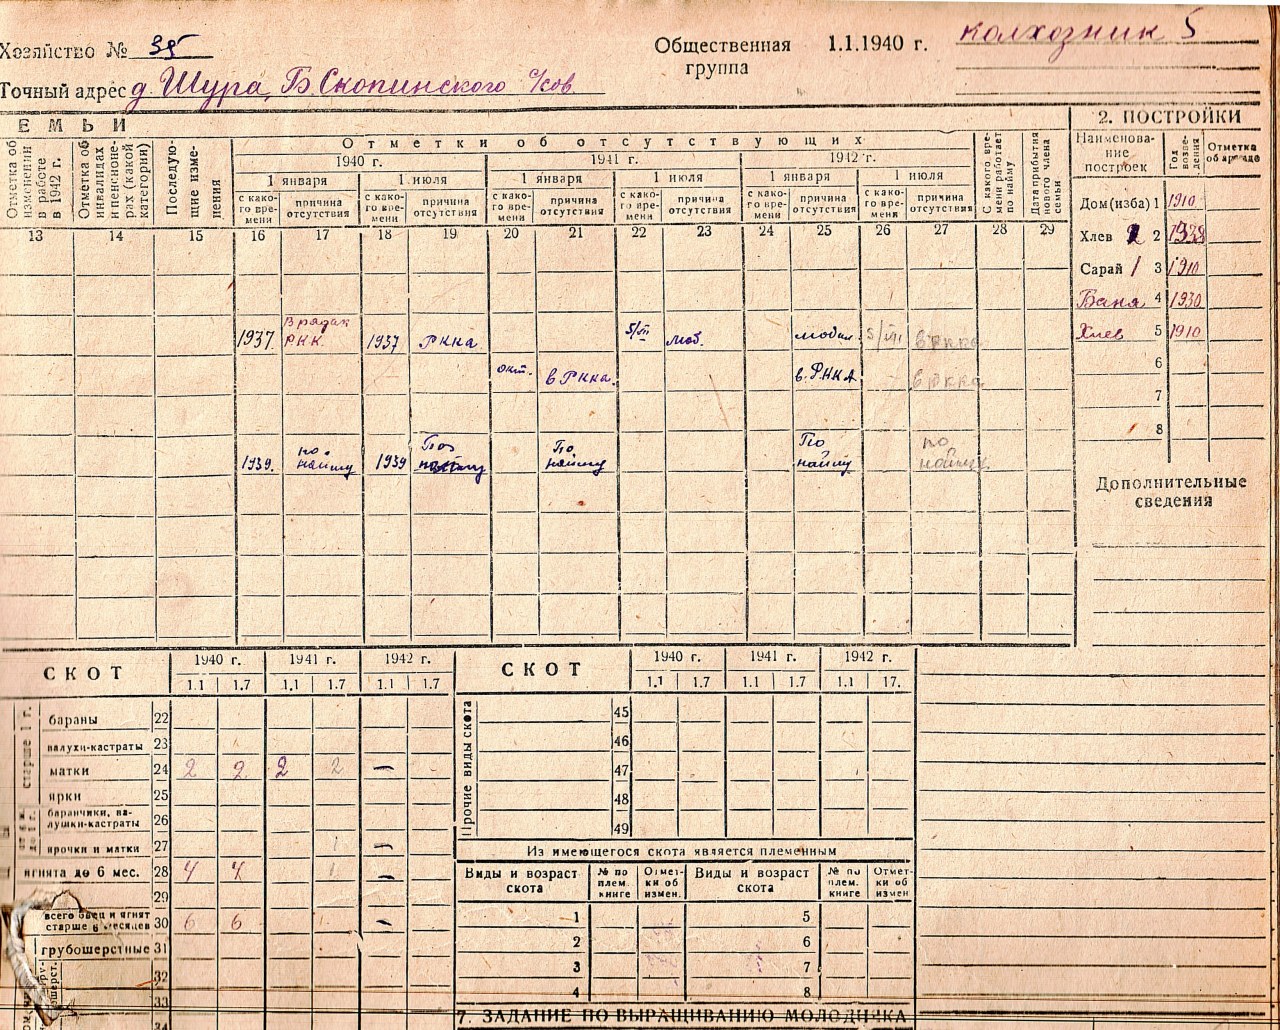 Хозяйство № 35
Общественная группа 1.1.1940 г. колхозник 5
Точный адрес д. Шура, Б. Скопинского с/сов.
ЕМЬИ
Отметка об изменении в работе в 1942 г.
Отметка об инвалидах и пенсионерах (какой категории)
Последующие изменения
Отметки об отсутствующих
1940 г. 1941 г. 1942 г.
1 января 1 июля 1 января 1 июля 1 января 1 июля
с какого времени причина отсутствия с какого времени причина отсутствия с какого времени причина отсутствия с какого времени причина отсутствия с какого времени причина отсутствия с какого времени причина отсутствия
С какого времени работает по найму
Дата прибытия нового члена семьи
13 14 15 16 17 18 19 20 21 22 23 24 25 26 27 28 29
1937 В рядах РКК. 1937 РККА 5/VII моб. мобил. 5/VII в РККА
окт. в РККА. в. РККА в РККА
1939. по найму 1939 По найму По найму По найму по найму
2. ПОСТРОЙКИ
Наименование построек Год возведения Отметка об аренде
Дом (изба) 1 1910
Хлев 2 2
Сарай 1 3 1910
Баня 4 1930
Хлев 5 1910
6
7
8
Дополнительные сведения
СКОТ 1940 г. 1941 г. 1942 г.
1.1 1.7 1.1 1.7 1.1 1.7
старше 1 г.
бараны 22
валухи-кастраты 23
матки 24 2 2 2 2 –
ярки 25
баранчики, валушки-кастраты 26
ярочки и матки 27 1 –
ягнята до 6 мес. 28 4 4 1 –
29
всего овец и ягнят старше 6 месяцев 30 6 6 –
грубошерстные 31
32
33
34
СКОТ 1940 г. 1941 г. 1942 г.
1.1 1.7 1.1 1.7 1.1 17.
Прочие виды скота
45
46
47
48
49
Из имеющегося скота является племенным
Виды и возраст скота № по плем. книге Отметки об измен. Виды и возраст скота № по плем. книге Отметки об измен
1 5
2 6
3 7
4 8
7. ЗАДАНИЕ ПО ВЫРАЩИВАНИЮ МОЛОДНЯКА